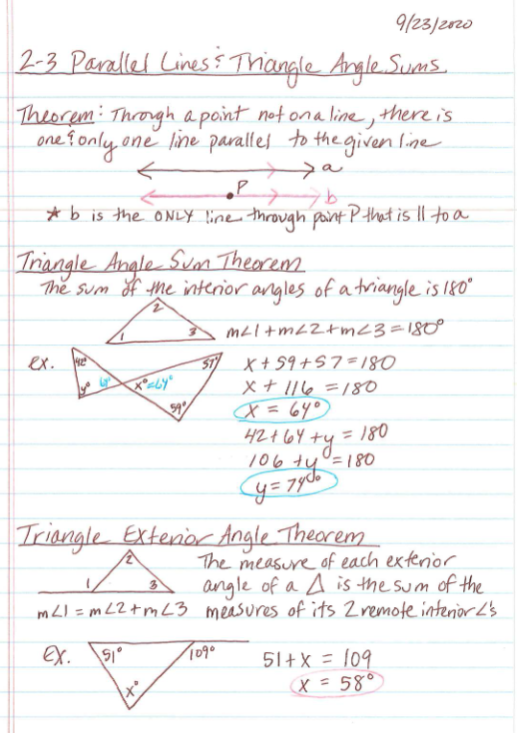 9/23/2020
2-3 Parallel Lines & Triangle Angle Sums
Theorem: Through a point not on a line, there is
one & only one line parallel to the given line
a
P
b
* b is the ONLY line through point P that is || to a
Triangle Angle Sum Theorem
The sum of the interior angles of a triangle is 180°
2
1 3
m∠1+m∠2+m∠3=180°
ex.
42° 57°
y° 64° x°=64°
59°
x+59+57=180
x+116=180
x = 64°
42+64+y = 180
106+y=180
y=74°
Triangle Exterior Angle Theorem
2
1 3
m∠1 = m∠2+m∠3
The measure of each exterior
angle of a △ is the sum of the
measures of its 2 remote interior ∠'s
EX.
51° 109°
x°
51+x = 109
x = 58°